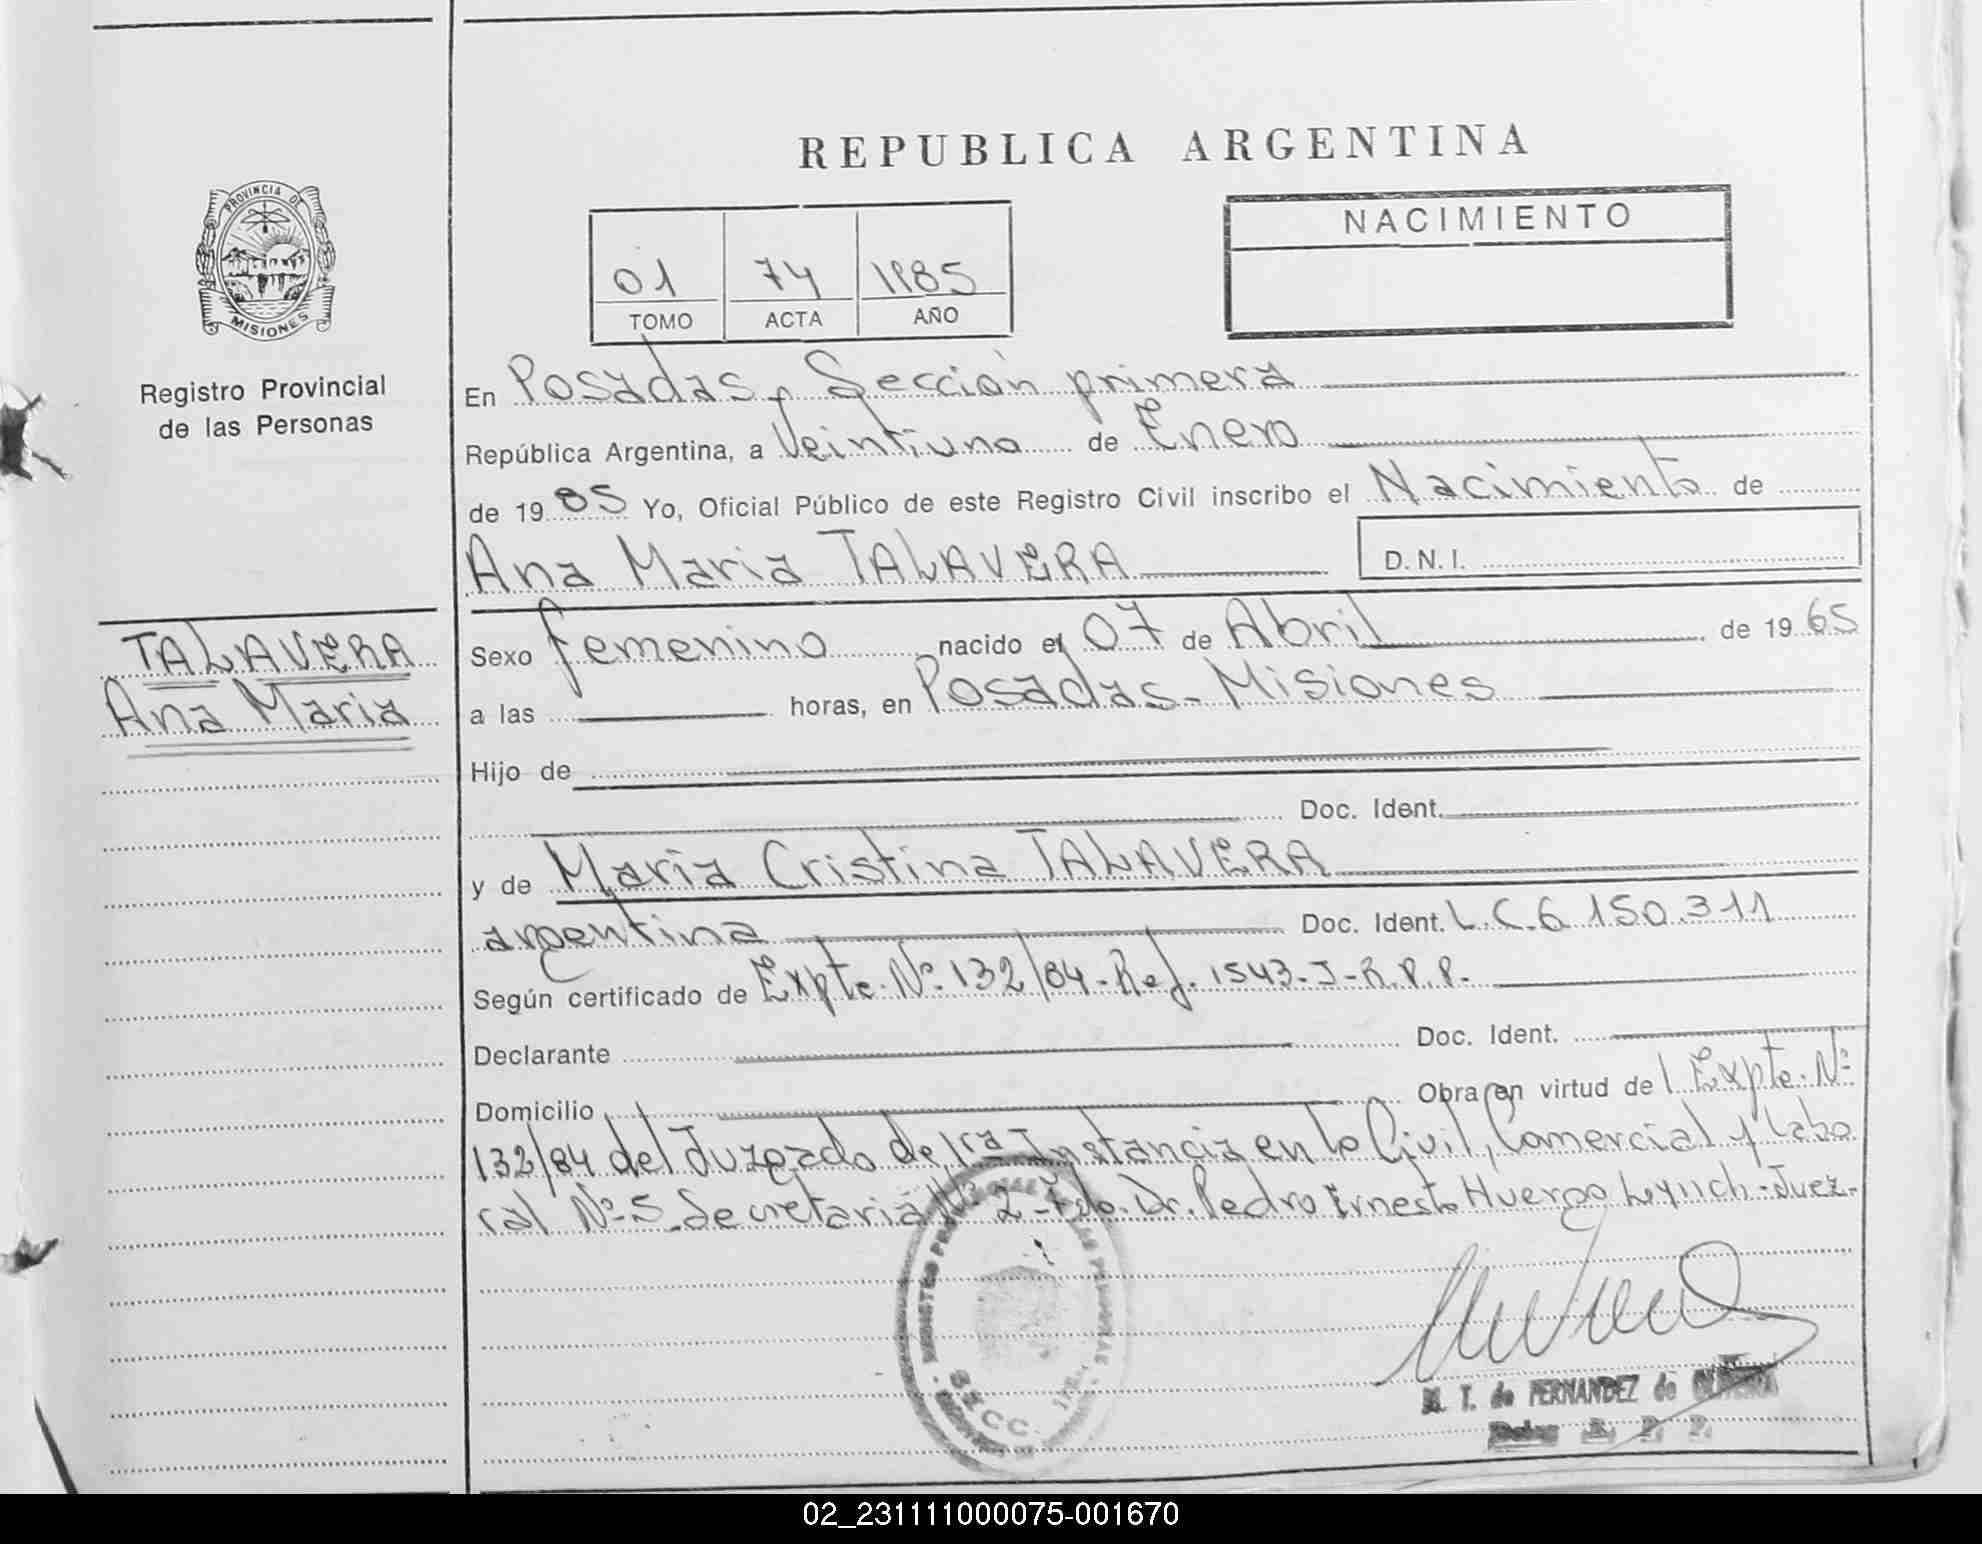 REPUBLICA ARGENTINA
PROVINCIA DE
MISIONES
Registro Provincial
de las Personas
01 74 1985
TOMO ACTA AÑO
NACIMIENTO
En Posadas, Sección primera
República Argentina, a Veintiuno de Enero
de 1985 Yo, Oficial Público de este Registro Civil inscribo el Nacimiento de
Ana Maria TALAVERA D.N.I.
TALAVERA
Ana Maria
Sexo femenino nacido el 07 de Abril de 1965
a las horas, en Posadas - Misiones
Hijo de
Doc. Ident.
y de Maria Cristina TALAVERA
argentina Doc. Ident. L.C. 6.150.311
Según certificado de Expte. Nº 132/84 - Ref. 1543-J-R.P.P.
Declarante Doc. Ident.
Domicilio Obra en virtud del Expte. Nº
132/84 del Juzgado de 1ra Instancia en lo Civil, Comercial y Labo
ral Nº 5 Secretaria Nº 2 - Fdo. Dr. Pedro Ernesto Huergo Lynch - Juez -
M. T. de FERNANDEZ de
02_231111000075-001670